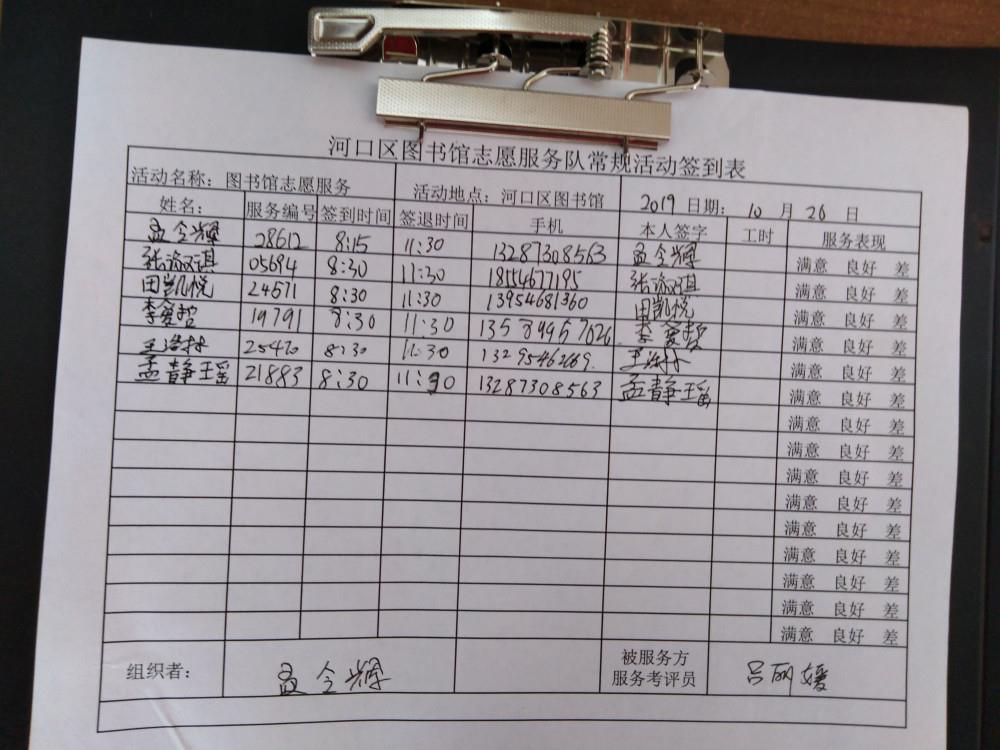 河口区图书馆志愿服务队常规活动签到表
活动名称：图书馆志愿服务 活动地点：河口区图书馆 2019 日期： 10 月 26 日
姓名： 服务编号 签到时间 签退时间 手机 本人签字 工时 服务表现
孟令辉 28612 8:15 11:30 13287308563 孟令辉 满意 良好 差
05694 8:30 11:30 18554677195 满意 良好 差
田凯悦 24571 8:30 11:30 13954681360 田凯悦 满意 良好 差
19791 8:30 11:30 满意 良好 差
8:30 11:30 满意 良好 差
孟静瑶 21883 8:30 11:30 13287308563 孟静瑶 满意 良好 差
满意 良好 差
满意 良好 差
满意 良好 差
满意 良好 差
满意 良好 差
满意 良好 差
满意 良好 差
满意 良好 差
满意 良好 差
组织者： 孟令辉 被服务方 吕丽媛
服务考评员